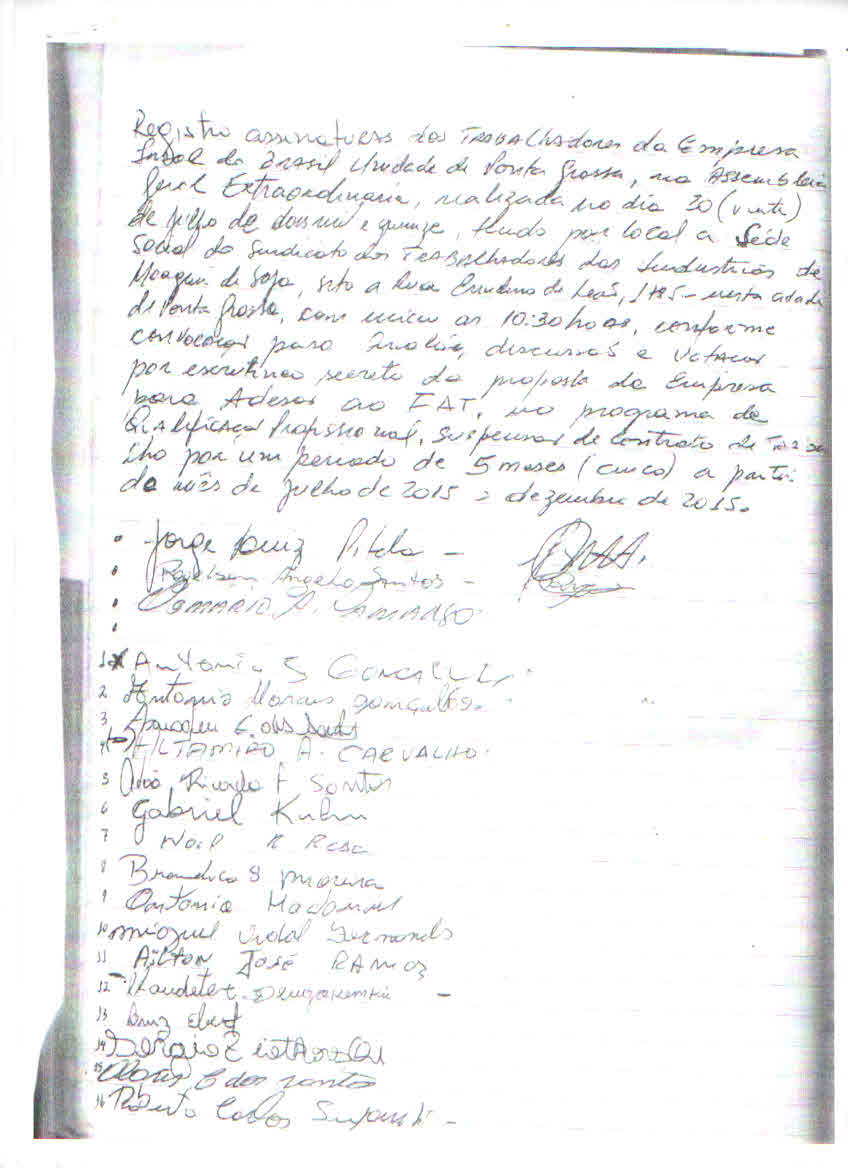 Registro assinaturas dos TRABALhadores da Empresa
do Brasil Unidade de Ponta Grossa, na Assembleia
Geral Extraordinaria, realizada no dia 20 (vinte)
de julho de dois mil e quinze, tendo por local a Séde
Social do Sindicato dos TRABALhadores das Industrias de
de Soja, sito a Rua de Leão, 1485 - nesta cidade
de Ponta Grossa, com inicio as 10:30 horas, conforme
convocação para Analise, discussão e Votação
por escrutineo secreto da proposta da Empresa
para Adesão ao FAT, no programa de
Qualificação Profissional, Suspensão de Contrato de Traba
lho por um periodo de 5 meses (cinco) a partir
do mês de Julho de 2015 a dezembro de 2015.
Jorge Luiz -
Angelo Santos -
A. CAMARGO
1 Antonio S GONCALVES
2 Antonio Marcus Gonçalves.
3 G. dos Santos
4 ALTAMIRO A. CARVALHO.
5 Ricardo F Santos
6 Gabriel Kuhn
7 Noel R Rosa
8 S Moreira
9 Antonio
10 Miguel Vidal Fernands
11 AilTon José RAMOS
12 -
13 Luiz Ebert
14 Sergio
15 C dos santos
16 Roberto Carlos -